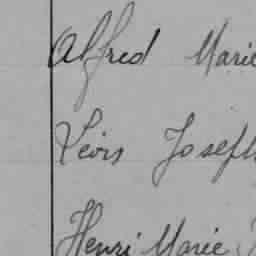 Alfred Marie
Léon Joseph
Henri Marie